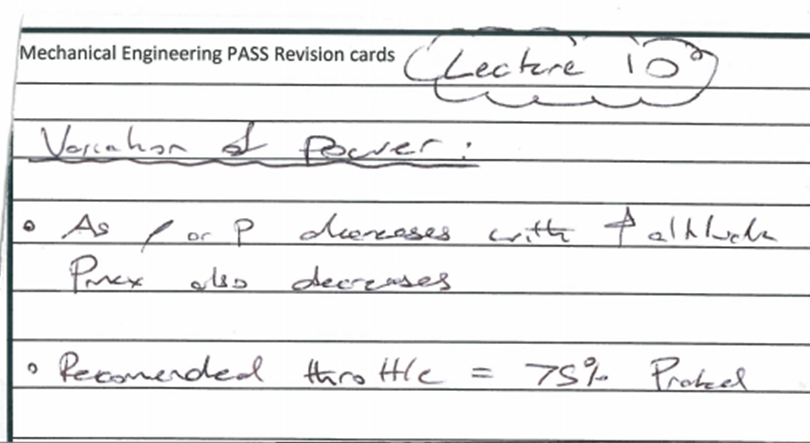 Mechanical Engineering PASS Revision cards
Lecture 10
Variation of Power:
• As ρ or P decreases with ↑ altitude
Pmax also decreases
• Recomended throttle = 75% Prated